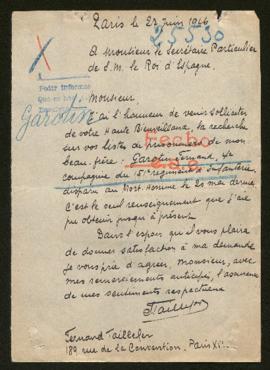 Paris le 23 juin 1916
25530
A Monsieur le Secrétaire Particulier
de S.M. le Roi d'Espagne.
Monsieur,
J'ai l'honneur de venir solliciter
de votre Haute Bienveillance, la recherche
sur vos listes de prisonniers de mon
beau frère: Garolin Fernand,
Garolin
Fecho
compagnie du 151e régiment d'Infanterie
disparu au Mort Homme le 20 mai dernier
C'est le seul renseignement que j'ai
pu obtenir jusqu'à présent.
Dans l'espoir qu'il vous plaira
de donner satisfaction à ma demande
je vous prie d'agréer, Monsieur, avec
mes remerciements anticipés, l'assurance
de mes sentiments respectueux
Taillefer
Fernand Taillefer
189 rue de la Convention. Paris